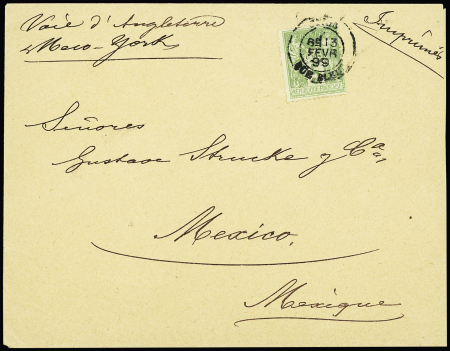 Voie d'Angleterre
& New-York
Imprimés
13
FEVR
99
Señores
Gustave Strucke y Cª
Mexico,
Mexique